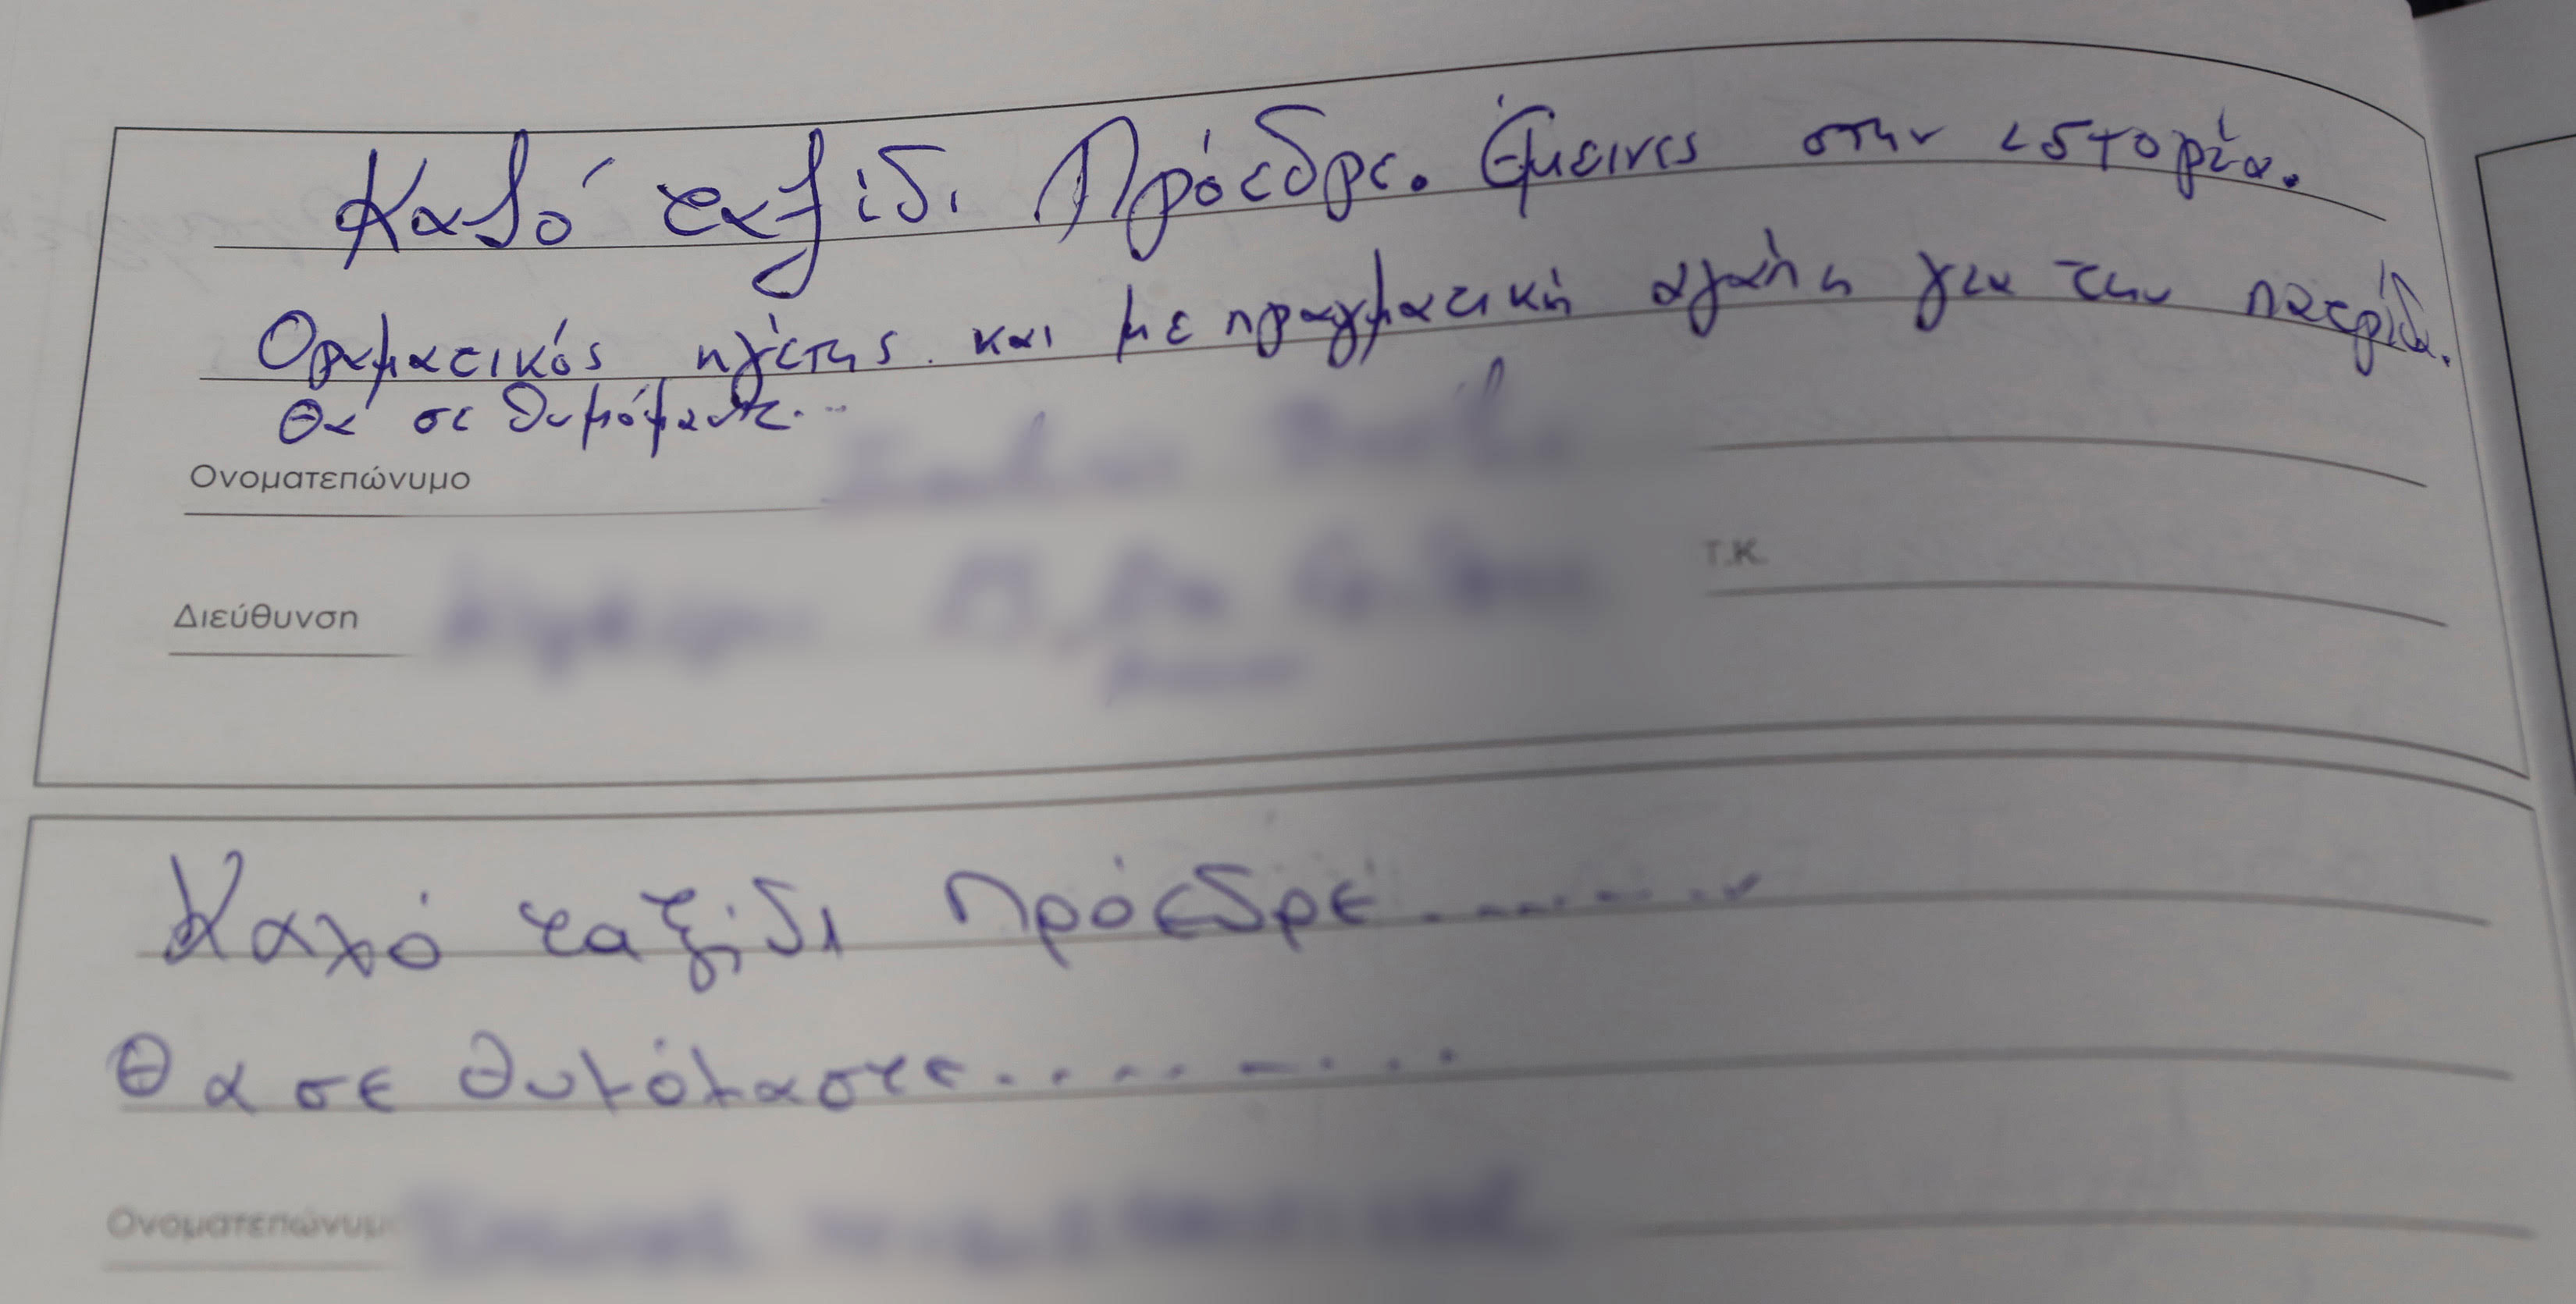 Καλό ταξίδι Πρόεδρε. Έμεινες στην ιστορία.
Οραματικός ηγέτης. και με πραγματική αγάπη για την πατρίδα.
Θα σε θυμόμαστε...
Ονοματεπώνυμο
Διεύθυνση
Τ.Κ.
Καλό ταξίδι Πρόεδρε..........
Θα σε θυμόμαστε.........
Ονοματεπώνυμ